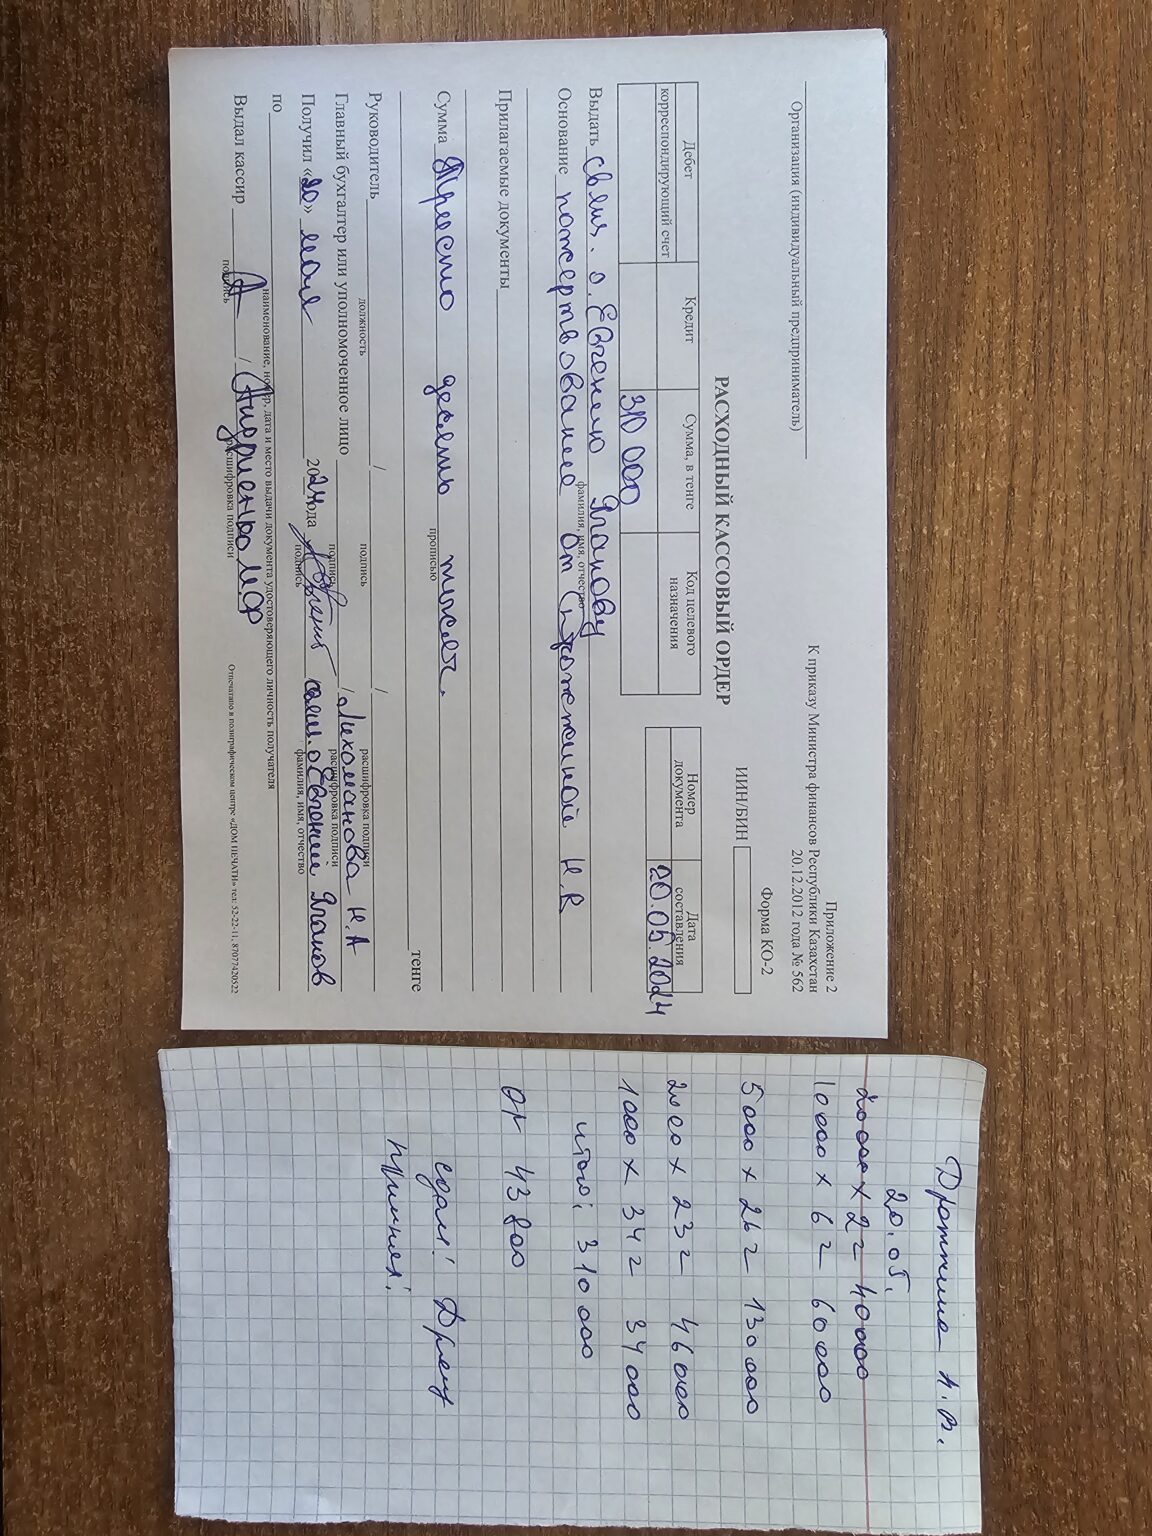 Приложение 2
К приказу Министра финансов Республики Казахстан
20.12.2012 года № 562
Форма КО-2
Организация (индивидуальный предприниматель)
ИИН/БИН
РАСХОДНЫЙ КАССОВЫЙ ОРДЕР
Номер документа
Дата составления
20.05.2024
Дебет
корреспондирующий счет
Кредит
Сумма, в тенге
Код целевого назначения
310 000
Выдать свящ. о. Евгению Ягапову
фамилия, имя, отчество
Основание пожертвование от Н.В
Прилагаемые документы
Сумма Триста десять тысяч.
прописью
тенге
Руководитель / /
должность подпись расшифровка подписи
Главный бухгалтер или уполномоченное лицо / Лихоманова Н.А
подпись расшифровка подписи
Получил «20» мая 2024 года свящ. о Евгений Ягапов
подпись фамилия, имя, отчество
по
наименование, номер, дата и место выдачи документа удостоверяющего личность получателя
Выдал кассир / Андриенко М.Ф
подпись расшифровка подписи
Отпечатано в полиграфическом центре «ДОМ ПЕЧАТИ» тел: 52-22-11, 87077420522
Н.В.
20.05.
20000 x 2 = 40000
10000 x 6 = 60000
5000 x 26 = 130000
2000 x 23 = 46000
1000 x 34 = 34000
итого: 310 000
от 43 800
сдал:
принял: